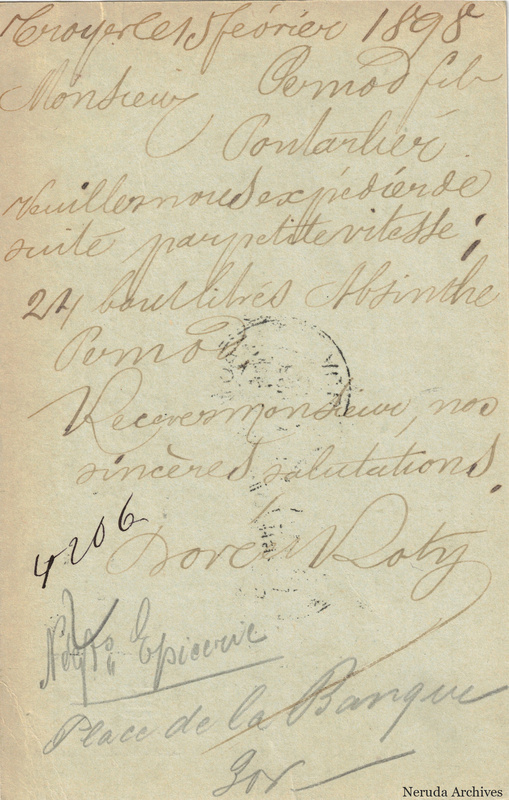 Troyes le 15 février 1898
Monsieur Pernod fils
Pontarlier
Veuillez nous expédier de
suite par petite vitesse ;
24 bout litres Absinthe
Pernod
Recevez monsieur, nos
sincères salutations.
4206
Roty
Epicerie
Place de la Banque
Neruda Archives